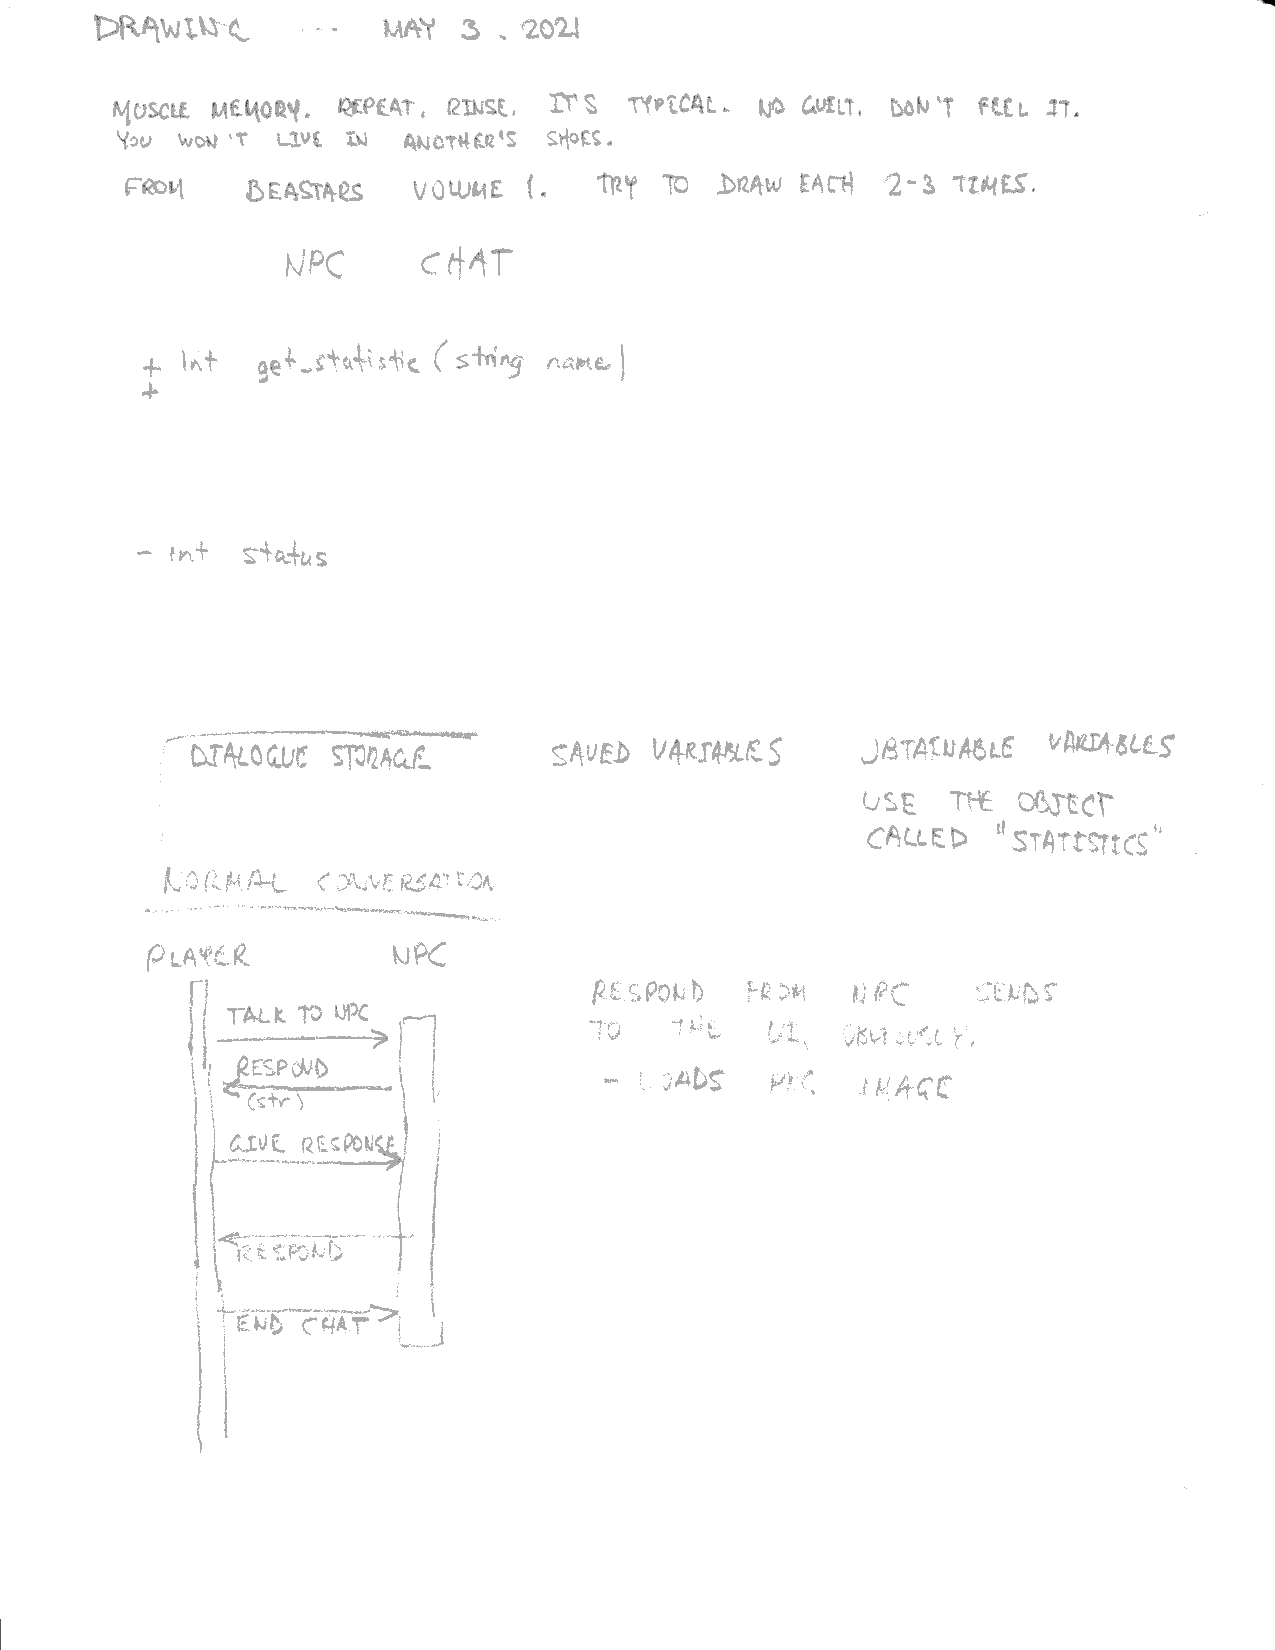 DRAWING --- MAY 3. 2021
MUSCLE MEMORY. REPEAT. RINSE. IT'S TYPICAL. NO GUILT. DON'T FEEL IT.
YOU WON'T LIVE IN ANOTHER'S SHOES.
FROM BEASTARS VOLUME 1. TRY TO DRAW EACH 2-3 TIMES.
NPC CHAT
+ int get_statistic (string name)
+
- int status
DIALOGUE STORAGE
SAVED VARIABLES
OBTAINABLE VARIABLES
USE THE OBJECT
CALLED "STATISTICS"
NORMAL CONVERSATION
PLAYER NPC
TALK TO NPC
RESPOND
(str)
GIVE RESPONSE
RESPOND
END CHAT
RESPOND FROM NPC SENDS
TO THE UI, OBVIOUSLY.
- LOADS NPC IMAGE